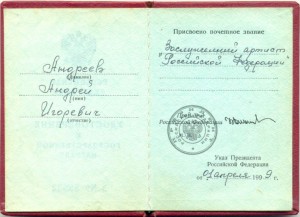 Андреев
(фамилия)
Андрей
(имя)
Игоревич
(отчество)
Присвоено почетное звание
"Заслуженный артист
Российской Федерации"
Президент
Российской Федерации
Указ Президента
Российской Федерации
от 01 апреля 1999 г.